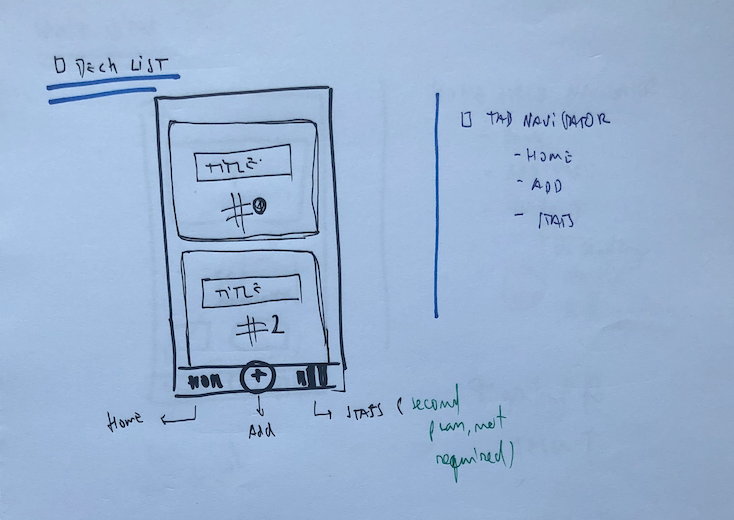 DECK LIST
TITLE
#
TITLE
#2
HOM
+
Home
Add
STATS (second
plan, not
required)
TAB NAVIGATOR
- HOME
- ADD
- STATS